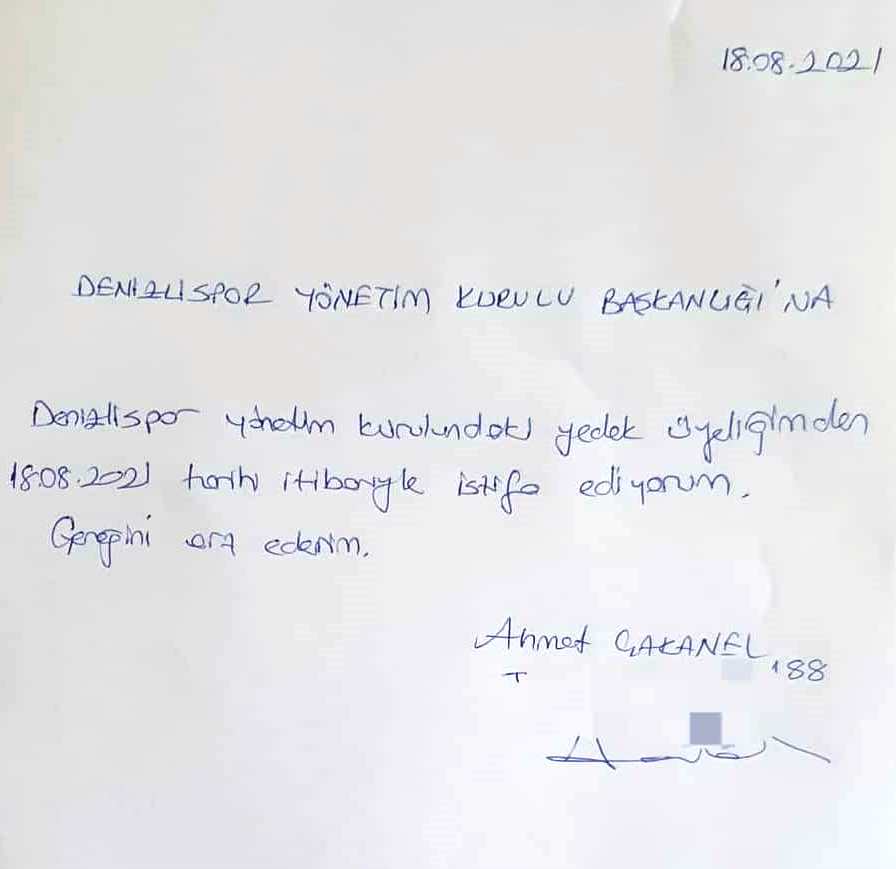 18.08.2021
DENİZLİSPOR YÖNETİM KURULU BAŞKANLIĞI'NA
Denizlispor yönetim kurulundaki yedek üyeliğimden
18.08.2021 tarihi itibariyle istifa ediyorum.
Gereğini arz ederim.
Ahmet ÇAKANEL
T 188